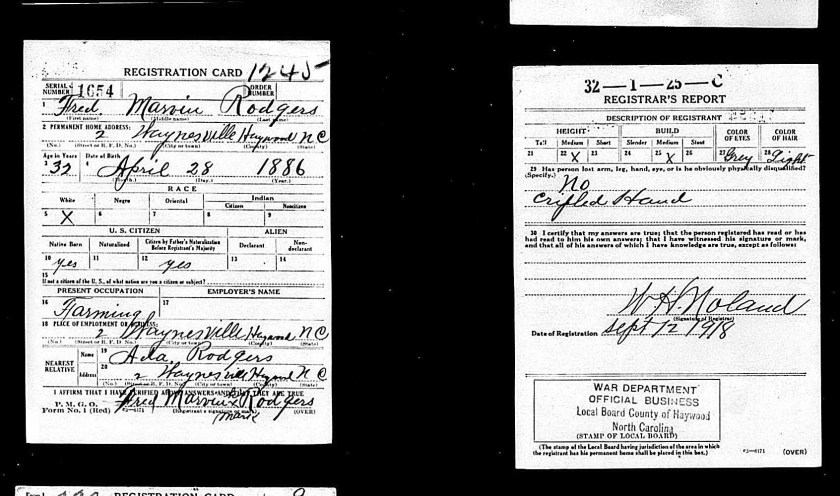 REGISTRATION CARD 1245
SERIAL NUMBER 1654 ORDER NUMBER
1 Fred Marvin Rodgers
(First name) (Middle name) (Last name)
2 PERMANENT HOME ADDRESS:
2 Waynesville Haywood N C
(No.) (Street or R. F. D. No.) (City or town) (County) (State)
Age in Years Date of Birth
3 32 4 April 28 1886
(Month.) (Day.) (Year.)
RACE
White Negro Oriental Indian
Citizen Noncitizen
5 X 6 7 8 9
U. S. CITIZEN ALIEN
Native Born Naturalized Citizen by Father's Naturalization Before Registrant's Majority Declarant Non-declarant
10 yes 11 12 yes 13 14
15
If not a citizen of the U. S., of what nation are you a citizen or subject?
PRESENT OCCUPATION EMPLOYER'S NAME
16 Farming 17
18 PLACE OF EMPLOYMENT OR BUSINESS:
2 Waynesville Haywood N C
(No.) (Street or R. F. D. No.) (City or town) (County) (State)
NEAREST RELATIVE Name 19 Ada Rodgers
Address 20 2 Waynesville Haywood N C
(No.) (Street or R. F. D. No.) (City or town) (County) (State)
I AFFIRM THAT I HAVE VERIFIED ABOVE ANSWERS AND THAT THEY ARE TRUE
P. M. G. O.
Form No. 1 (Red) 03—6171 Fred Marvin X Rodgers
(Registrant's signature or mark) (OVER)
mark
32—1—25—C
REGISTRAR'S REPORT
DESCRIPTION OF REGISTRANT
HEIGHT BUILD COLOR OF EYES COLOR OF HAIR
Tall Medium Short Slender Medium Stout
21 22 X 23 24 25 X 26 27 Grey 28 Light
29 Has person lost arm, leg, hand, eye, or is he obviously physically disqualified?
(Specify.) No
Cripled Hand
30 I certify that my answers are true; that the person registered has read or has
had read to him his own answers; that I have witnessed his signature or mark,
and that all of his answers of which I have knowledge are true, except as follows:
W. H. Noland
(Signature of Registrar)
Date of Registration Sept 12 1918
WAR DEPARTMENT
OFFICIAL BUSINESS
Local Board County of Haywood
North Carolina
(STAMP OF LOCAL BOARD)
(The stamp of the Local Board having jurisdiction of the area in which
the registrant has his permanent home shall be placed in this box.) 03—6171 (OVER)
REGISTRATION CARD